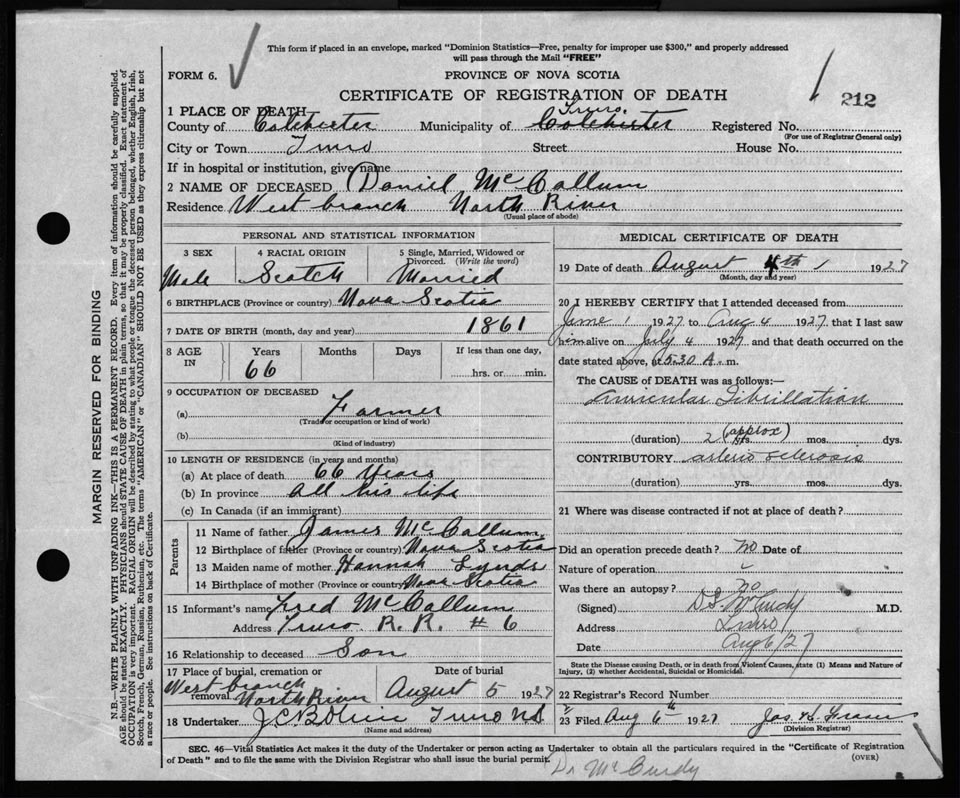 This form if placed in an envelope, marked "Dominion Statistics—Free, penalty for improper use $300," and properly addressed
will pass through the Mail "FREE"
FORM 6.
PROVINCE OF NOVA SCOTIA
CERTIFICATE OF REGISTRATION OF DEATH
212
1 PLACE OF DEATH
Truro.
County of Colchester Municipality of Colchester Registered No.
(For use of Registrar General only)
City or Town Truro Street House No.
If in hospital or institution, give name
2 NAME OF DECEASED Daniel McCallum
Residence West branch North River
(Usual place of abode)
PERSONAL AND STATISTICAL INFORMATION
3 SEX 4 RACIAL ORIGIN 5 Single, Married, Widowed or
Divorced. (Write the word)
Male Scotch Married
6 BIRTHPLACE (Province or country) Nova Scotia
7 DATE OF BIRTH (month, day and year) 1861
8 AGE IN Years Months Days If less than one day,
66 hrs. or min.
9 OCCUPATION OF DECEASED
(a) Farmer
(Trade or occupation or kind of work)
(b)
(Kind of industry)
10 LENGTH OF RESIDENCE (in years and months)
(a) At place of death 66 Years
(b) In province all his life
(c) In Canada (if an immigrant)
Parents
11 Name of father James McCallum
12 Birthplace of father (Province or country) Nova Scotia
13 Maiden name of mother Hannah Lynds
14 Birthplace of mother (Province or country) Nova Scotia
15 Informant's name Fred McCallum
Address Truro R. R. # 6
16 Relationship to deceased Son
17 Place of burial, cremation or Date of burial
West branch
removal North River August 5 1927
18 Undertaker Truro N.S.
(Name and address)
MEDICAL CERTIFICATE OF DEATH
19 Date of death August 4th 1927
(Month, day and year)
20 I HEREBY CERTIFY that I attended deceased from
1 1927 to Aug 4 1927 that I last saw
him alive on July 4 1927 and that death occurred on the
date stated above, at 5:30 A. m.
The CAUSE OF DEATH was as follows:—
Auricular Fibrillation
(duration) 2 (approx) yrs. mos. dys.
CONTRIBUTORY arterio sclerosis
(duration) yrs. mos. dys.
21 Where was disease contracted if not at place of death?
Did an operation precede death? no Date of
Nature of operation
Was there an autopsy? no
(Signed) McCurdy M.D.
Address Truro
Date Aug 6/27
State the Disease causing Death, or in death from Violent Causes, state (1) Means and Nature of
Injury, (2) whether Accidental, Suicidal or Homicidal.
22 Registrar's Record Number
23 Filed Aug 6th 1927 Jas Fraser
(Division Registrar)
SEC. 46—Vital Statistics Act makes it the duty of the Undertaker or person acting as Undertaker to obtain all the particulars required in the "Certificate of Registration
of Death" and to file the same with the Division Registrar who shall issue the burial permit.
(OVER)
Dr McCurdy
MARGIN RESERVED FOR BINDING
N.B.—WRITE PLAINLY WITH UNFADING INK—THIS IS A PERMANENT RECORD. Every item of information should be carefully supplied.
AGE should be stated EXACTLY. PHYSICIANS should STATE CAUSE OF DEATH in plain terms, so that it may be properly classified. Exact statement of
OCCUPATION is very important. RACIAL ORIGIN will be described by stating to what people or tongue the deceased person belonged, whether English, Irish,
Scotch, French, German, Russian, Ruthenian, etc. The terms "AMERICAN" or "CANADIAN" SHOULD NOT BE USED as they express citizenship but not
a race or people. See instructions on back of Certificate.